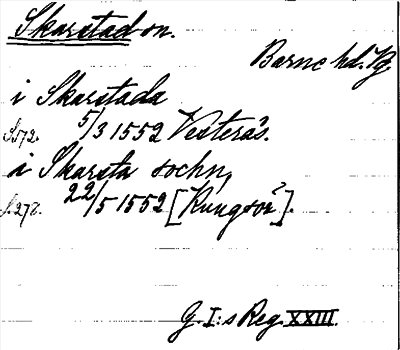 Skarstad sn.
Barne hd. Vg
i Skarstada
S. 572. 5/3 1552 Vesterås.
i Skarsta sochn,
S. 278. 22/5 1552 [Kungsör].
G. I:s Reg. XXIII.